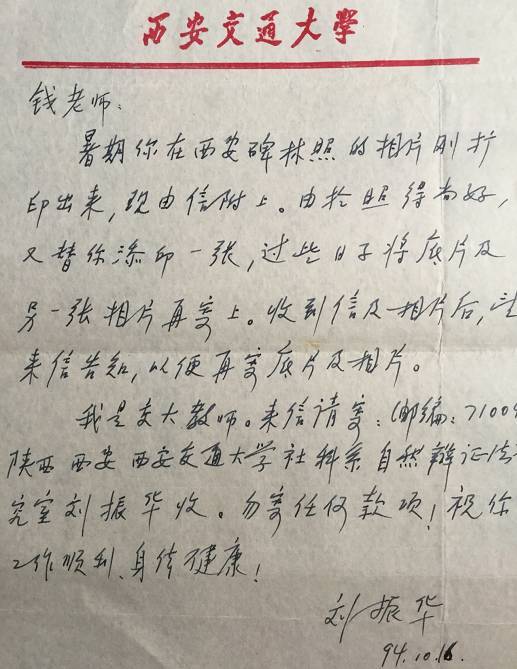 西安交通大学
钱老师:
暑期你在西安碑林照的相片刚扩
印出来,现由信附上。由於照得尚好,
又替你添印一张,过些日子将底片及
另一张相片再寄上。收到信及相片后,
来信告知,以便再寄底片及相片。
我是交大教师。来信请寄:(邮编:7100
陕西西安西安交通大学社科系自然辩证法
究室刘振华收。勿寄任何款项!祝你
工作顺利、身体健康!
刘振华
94.10.16.